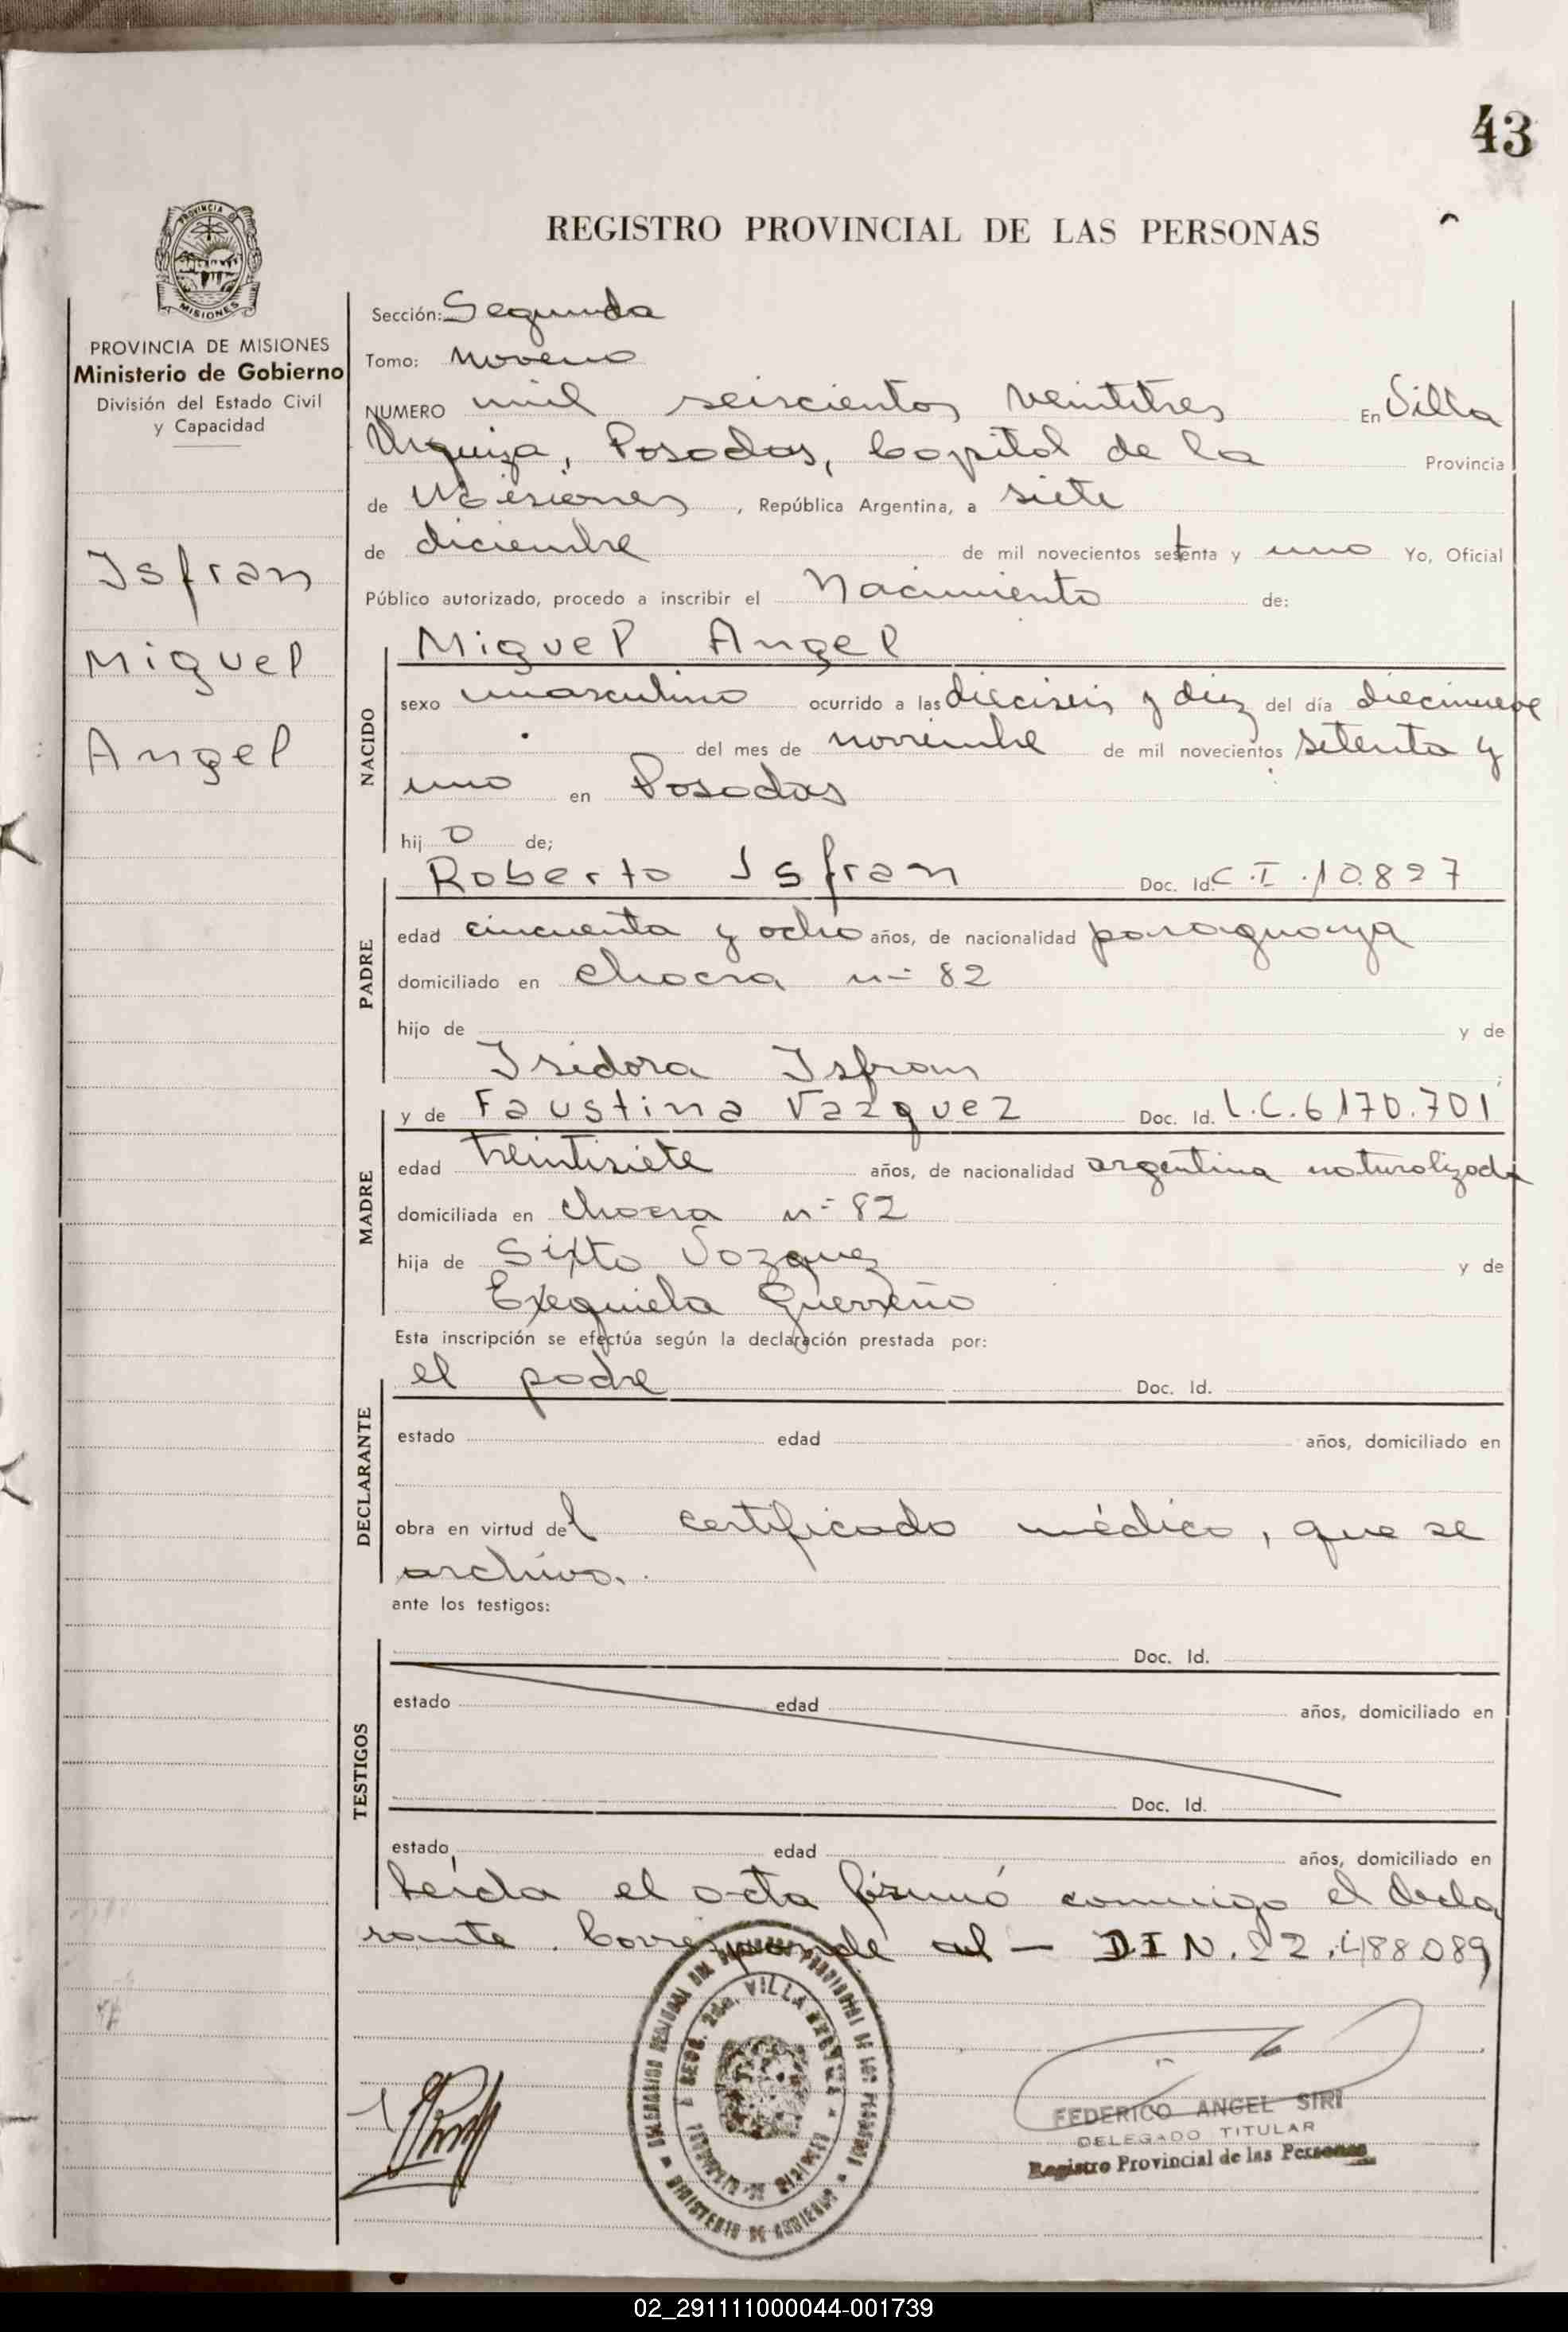 43
REGISTRO PROVINCIAL DE LAS PERSONAS
PROVINCIA DE
MISIONES
PROVINCIA DE MISIONES
Ministerio de Gobierno
División del Estado Civil
y Capacidad
Isfran
Miguel
Angel
Sección: Segunda
Tomo: Noveno
NUMERO mil seiscientos veintitres En Villa
Urquiza, Posadas, Capital de la Provincia
de Misiones, República Argentina, a siete
de diciembre de mil novecientos setenta y uno Yo, Oficial
Público autorizado, procedo a inscribir el Nacimiento de:
NACIDO
Miguel Angel
sexo masculino ocurrido a las dieciseis y diez del día diecinueve
del mes de noviembre de mil novecientos setenta y
uno en Posadas
hijo de;
PADRE
Roberto Isfran Doc. Id. C.I. 10.827
edad cincuenta y ocho años, de nacionalidad paraguaya
domiciliado en chacra nº 82
hijo de y de
Isidora Isfran
MADRE
y de Faustina Vazquez Doc. Id. L.C. 6170.701
edad treintisiete años, de nacionalidad argentina naturalizada
domiciliada en chacra nº 82
hija de Sixto Vazquez y de
Exequiela Guerreño
Esta inscripción se efectúa según la declaración prestada por:
DECLARANTE
el padre Doc. Id.
estado edad años, domiciliado en
obra en virtud del certificado médico, que se
archiva.
ante los testigos:
TESTIGOS
Doc. Id.
estado edad años, domiciliado en
Doc. Id.
estado edad años, domiciliado en
Leída el acta firmó conmigo el decla
rante. Corresponde al - D.I N. 22.488.089
SECC. 2da. VILLA URQUIZA
MINISTERIO DE GOBIERNO
FEDERICO ANGEL SIRI
DELEGADO TITULAR
Registro Provincial de las Personas
02_291111000044-001739